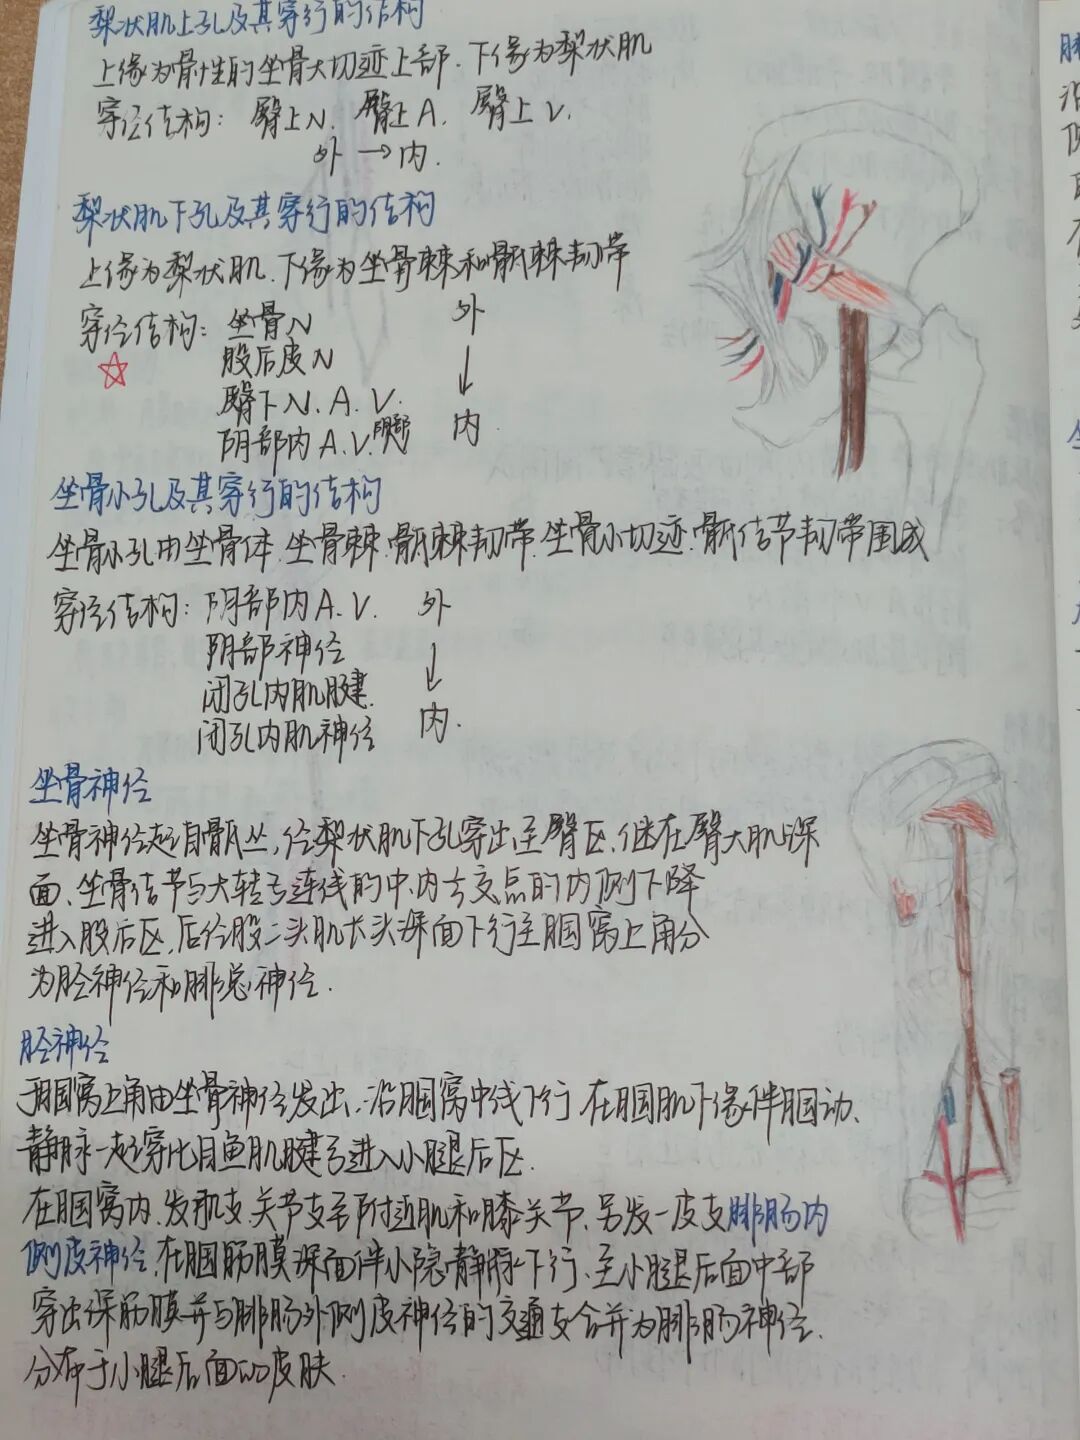 梨状肌上孔及其穿行的结构
上缘为骨性的坐骨大切迹上部.下缘为梨状肌
穿经结构: 臀上N. 臀上A. 臀上V.
外→内.
梨状肌下孔及其穿行的结构
上缘为梨状肌.下缘为坐骨棘和骶棘韧带
穿经结构: 坐骨N 外
股后皮N ↓
臀下N.A.V.
阴部内A.V.阴部 内.
坐骨小孔及其穿行的结构
坐骨小孔由坐骨体.坐骨棘.骶棘韧带.坐骨小切迹.骶结节韧带围成
穿经结构: 阴部内A.V. 外
阴部神经 ↓
闭孔内肌腱.
闭孔内肌神经 内.
坐骨神经
坐骨神经起自骶丛,经梨状肌下孔穿出至臀区.继在臀大肌深
面.坐骨结节与大转子连线的中.内⅓交点的内侧下降
进入股后区.后经股二头肌长头深面下行至腘窝上角分
为胫神经和腓总神经.
胫神经
于腘窝上角由坐骨神经发出.沿腘窝中线下行.在腘肌下缘伴腘动、
静脉一起穿比目鱼肌腱弓进入小腿后区.
在腘窝内.发肌支.关节支至附近肌和膝关节.另发一皮支腓肠内
侧皮神经.在腘筋膜深面伴小隐静脉下行.至小腿后面中部
穿出深筋膜并与腓肠外侧皮神经的交通支合并为腓肠神经.
分布于小腿后面的皮肤.